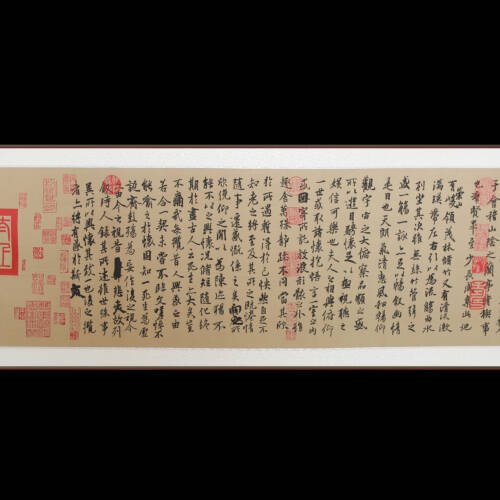 于會稽山陰之蘭亭脩稧事
也群賢畢至少長咸集此地
有崇山峻領茂林脩竹又有清流激
湍暎帶左右引以為流觴曲水
列坐其次雖無絲竹管弦之
盛一觴一詠亦足以暢敘幽情
是日也天朗氣清惠風和暢仰
觀宇宙之大俯察品類之盛
所以遊目騁懷足以極視聽之
娛信可樂也夫人之相與俯仰
一世或取諸懷抱悟言一室之內
或因寄所託放浪形骸之外雖
趣舍萬殊靜躁不同當其欣
於所遇暫得於己怏然自足不
知老之將至及其所之既惓情
隨事遷感慨係之矣向之所
欣俛仰之閒以為陳跡猶不
能不以之興懷況脩短隨化終
期於盡古人云死生亦大矣豈
不痛哉每攬昔人興感之由
若合一契未嘗不臨文嗟悼不
能喻之於懷固知一死生為虛
誕齊彭殤為妄作後之視今
亦由今之視昔悲夫故列
敘時人錄其所述雖世殊事
異所以興懷其致一也後之攬
者亦將有感於斯文